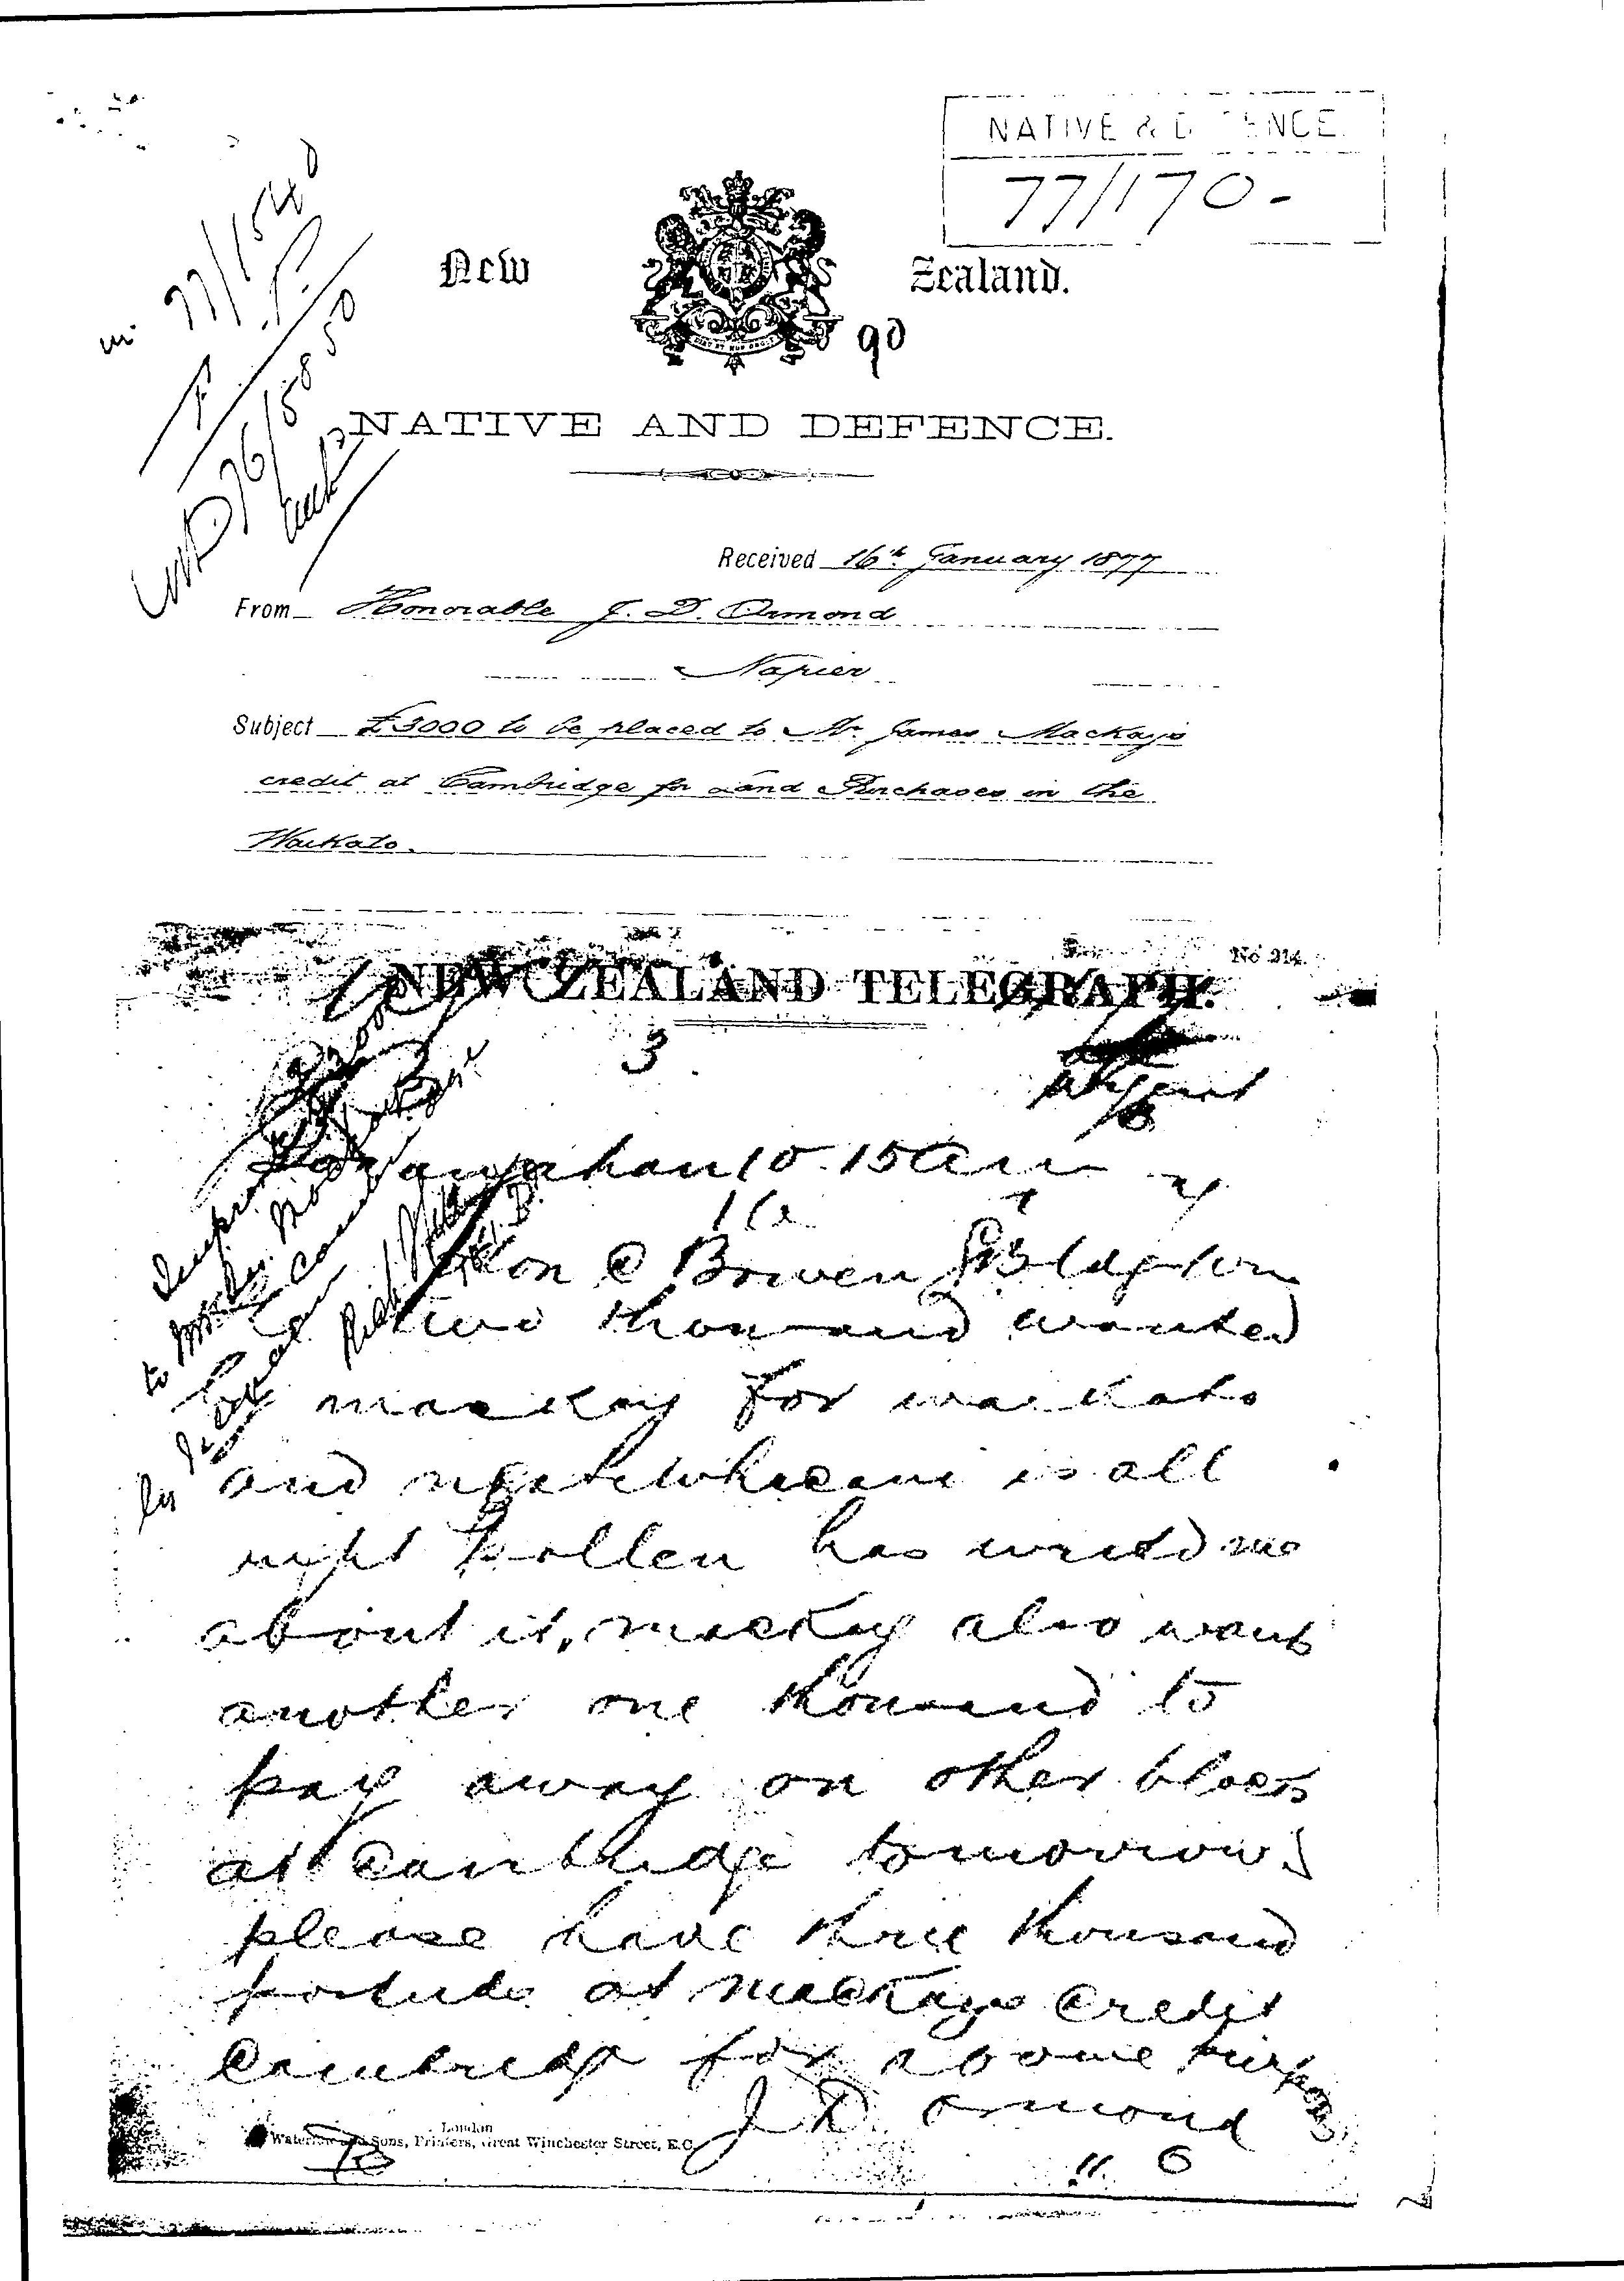 NATIVE & D ENCE.
77/170-
77/1540
New Zealand.
90
76/5850
NATIVE AND DEFENCE.
Received 16th January 1877
From Honorable J. D. Ormond
Napier
Subject £3000 to be placed to Mr James Mackay's
credit at Cambridge for Land Purchases in the
Waikato.
No 214.
NEW ZEALAND TELEGRAPH.
3
urgent
10.15 am
Hon C Bowen Bldg Wn
two thousand wanted
mackay for waikato
and is all
right Pollen has wired me
about it, mackay also wants
another one thousand to
pay away on other blocks
at Cambridge tomorrow
please have three thousand
at mackays credit
Cambridge for above purposes
J D Ormond
London
Waterlow and Sons, Printers, Great Winchester Street, E.C.
11. 6